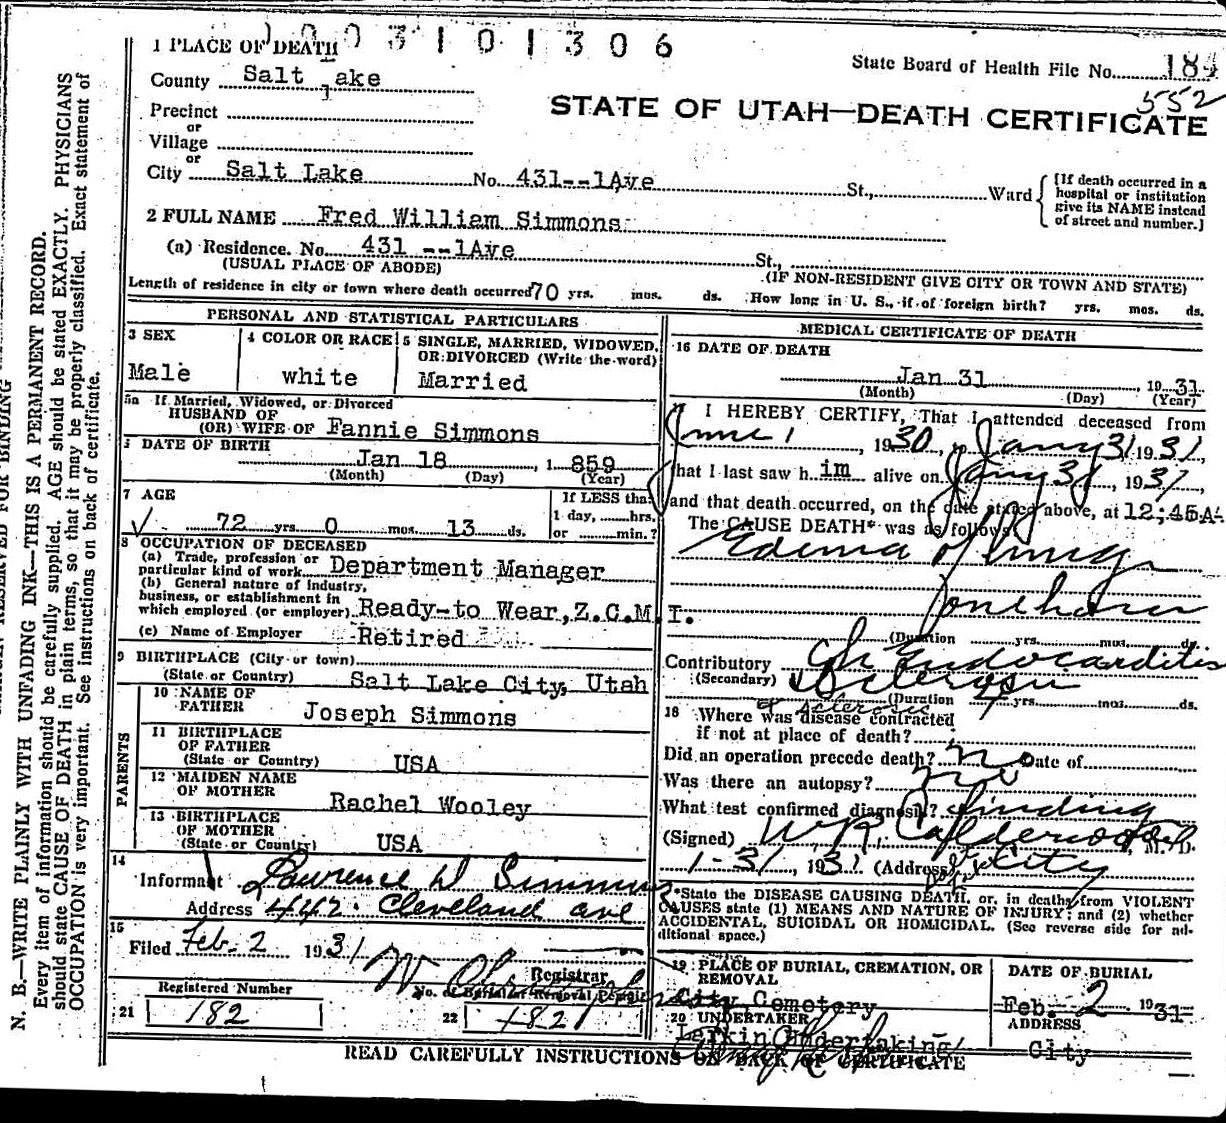 1003101306
1 PLACE OF DEATH
State Board of Health File No. 184
552
County Salt Lake
STATE OF UTAH—DEATH CERTIFICATE
Precinct
or
Village
or
City Salt Lake No. 431--1Ave St., Ward
[If death occurred in a
hospital or institution
give its NAME instead
of street and number.]
2 FULL NAME Fred William Simmons
(a) Residence. No. 431 --1Ave St.,
(USUAL PLACE OF ABODE) (IF NON-RESIDENT GIVE CITY OR TOWN AND STATE)
Length of residence in city or town where death occurred 70 yrs. mos. ds. How long in U. S., if of foreign birth? yrs. mos. ds.
PERSONAL AND STATISTICAL PARTICULARS
3 SEX
Male
4 COLOR OR RACE
white
5 SINGLE, MARRIED, WIDOWED,
OR DIVORCED (Write the word)
Married
5a If Married, Widowed, or Divorced
HUSBAND OF
(OR) WIFE OF Fannie Simmons
DATE OF BIRTH
Jan 18, 1 859
(Month) (Day) (Year)
7 AGE
72 yrs. 0 mos. 13 ds.
If LESS tha
1 day, hrs.
or min.?
8 OCCUPATION OF DECEASED
(a) Trade, profession or
particular kind of work Department Manager
(b) General nature of industry,
business, or establishment in
which employed (or employer) Ready-to Wear, Z.C.M.I.
(c) Name of Employer Retired
9 BIRTHPLACE (City or town)
(State or Country) Salt Lake City, Utah
PARENTS
10 NAME OF
FATHER Joseph Simmons
11 BIRTHPLACE
OF FATHER
(State or Country) USA
12 MAIDEN NAME
OF MOTHER Rachel Wooley
13 BIRTHPLACE
OF MOTHER
(State or Country) USA
14
Informant Lawrence W Simmons
Address 442 Cleveland ave
15
Filed Feb. 2 1931
Registrar
Registered Number
21 182
No. of Burial or Removal Permit
22 1821
MEDICAL CERTIFICATE OF DEATH
16 DATE OF DEATH
Jan 31, 1931
(Month) (Day) (Year)
I HEREBY CERTIFY, That I attended deceased from
June 1, 1930, to Jany 31 1931,
that I last saw h im alive on Jany 31, 1931,
and that death occurred, on the date stated above, at 12;45A.
The CAUSE DEATH* was as follows
Edema of lungs
(Duration yrs. mos. ds.
Contributory Ch Endocarditis
(Secondary) Sclerosis
(Duration yrs. mos. ds.
18 Where was disease contracted
if not at place of death?
Did an operation precede death? no Date of
Was there an autopsy? no
What test confirmed diagnosis? finding
(Signed) W.R. Calderwood, M. D.
1-31, 1931 (Address) City
*State the DISEASE CAUSING DEATH, or, in deaths from VIOLENT
CAUSES state (1) MEANS AND NATURE OF INJURY; and (2) whether
ACCIDENTAL, SUICIDAL OR HOMICIDAL. (See reverse side for ad-
ditional space.)
19 PLACE OF BURIAL, CREMATION, OR
REMOVAL
City Cemetery
DATE OF BURIAL
Feb. 2 1931
20 UNDERTAKER
Larkin Undertaking
ADDRESS
City
READ CAREFULLY INSTRUCTIONS ON BACK OF CERTIFICATE
N. B.—WRITE PLAINLY WITH UNFADING INK—THIS IS A PERMANENT RECORD.
Every item of information should be carefully supplied. AGE should be stated EXACTLY. PHYSICIANS
should state CAUSE OF DEATH in plain terms, so that it may be properly classified. Exact statement of
OCCUPATION is very important. See instructions on back of certificate.
RESERVED FOR BINDING